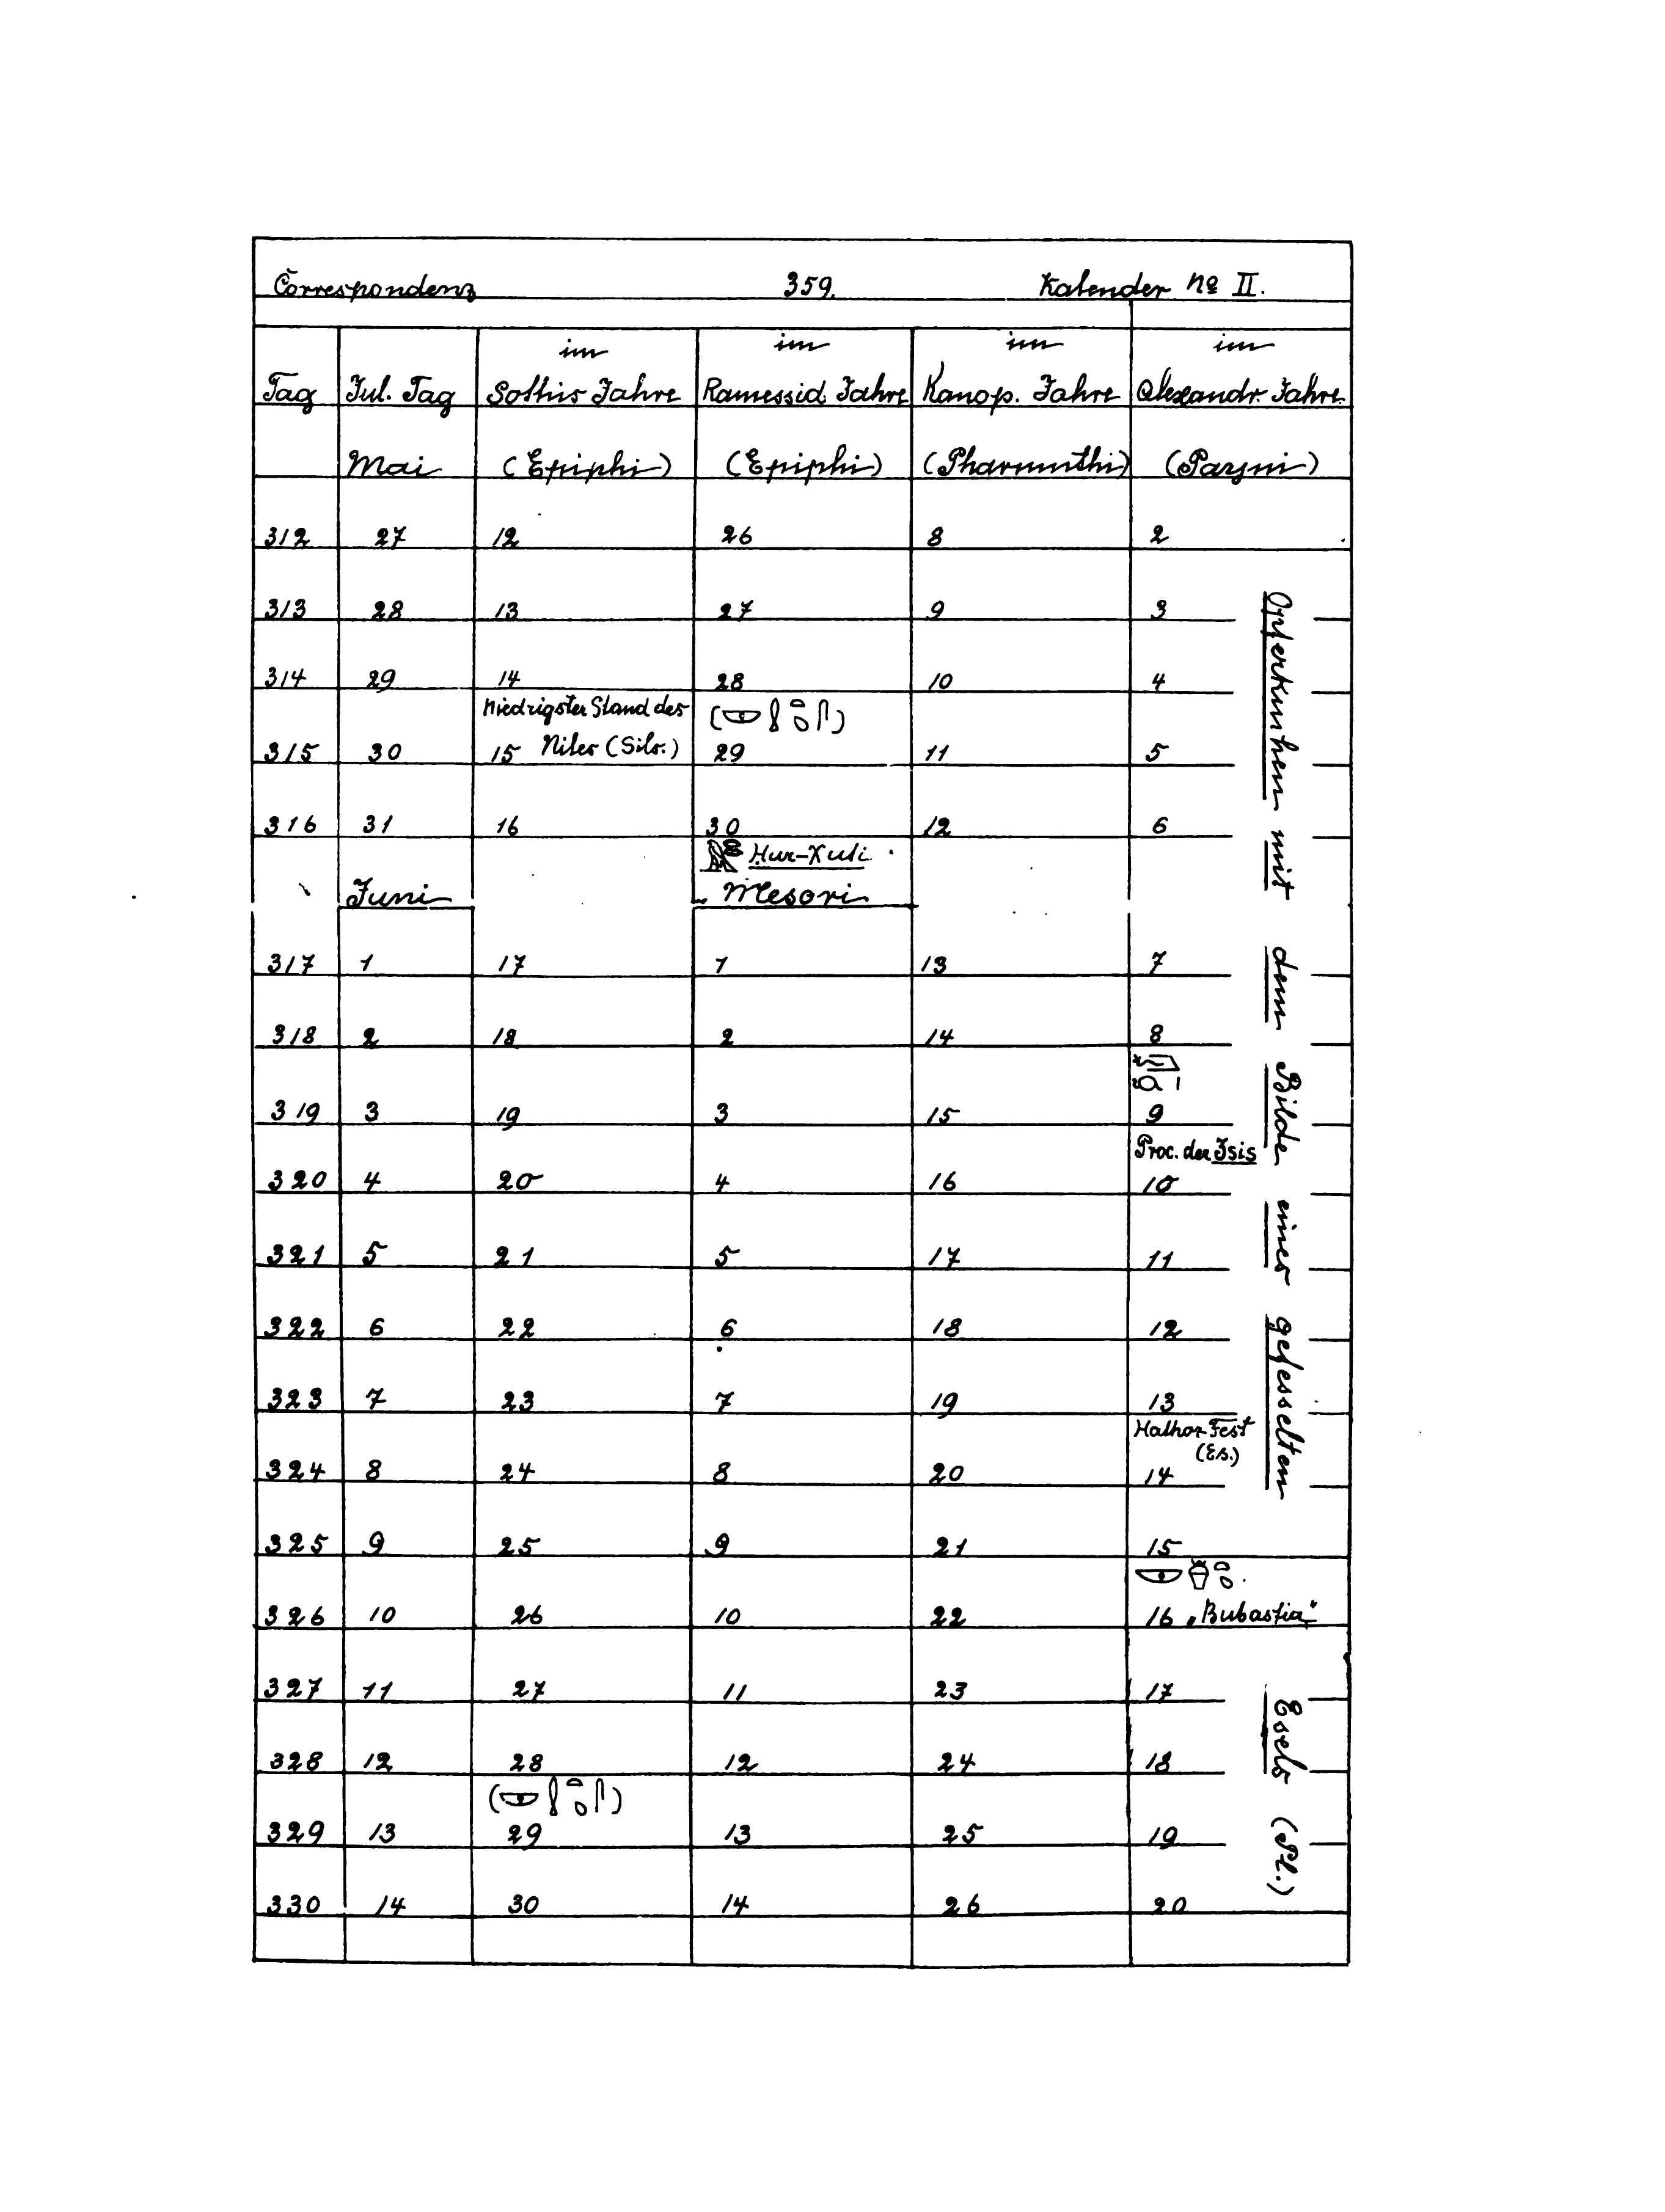 Correspondenz 359. Kalender No II.
im im im im
Tag Jul. Tag Sothis Jahre Ramessid. Jahre Kanop. Jahre Alexandr. Jahre
Mai (Epiphi) (Epiphi) (Pharmuthi) (Payni)
312 27 12 26 8 2
313 28 13 27 9 3
314 29 14 28 10 4
Niedrigster Stand des
315 30 15 Niles (Silv.) 29 11 5
316 31 16 30 12 6
Hur-Xuti
Juni Mesori
317 1 17 1 13 7
318 2 18 2 14 8
319 3 19 3 15 9
Proc. der Isis
320 4 20 4 16 10
321 5 21 5 17 11
322 6 22 6 18 12
323 7 23 7 19 13
Hathor Fest
(Es.)
324 8 24 8 20 14
325 9 25 9 21 15
326 10 26 10 22 16 „Bubastia"
327 11 27 11 23 17
328 12 28 12 24 18
329 13 29 13 25 19
330 14 30 14 26 20
Opferkuchen mit dem Bilde eines gefesselten Esels (Pl.)